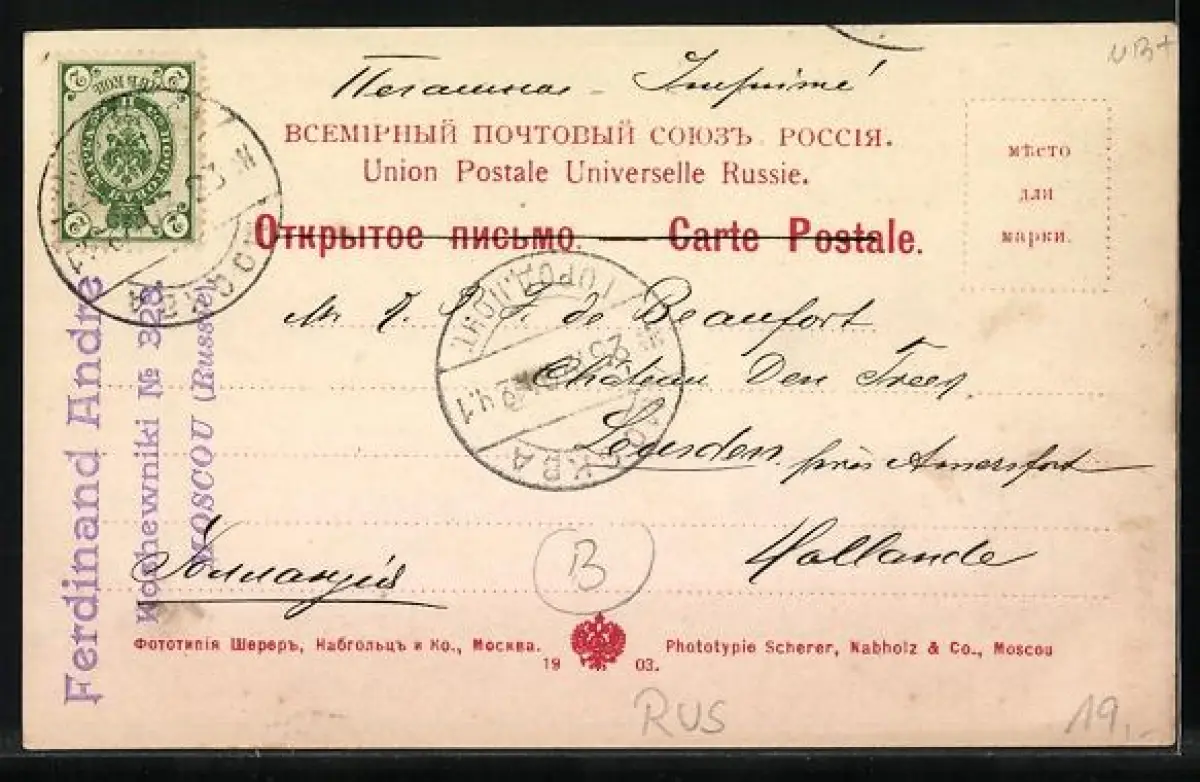 Печатное - Imprimé
ВСЕМІРНЫЙ ПОЧТОВЫЙ СОЮЗЪ. РОССІЯ.
Union Postale Universelle Russie.
Открытое письмо. — Carte Postale.
мѣсто
для
марки.
2 2
2 2
МОСКВА
Ferdinand Andre
№ 328
MOSCOU (Russie)
de Beaufort
Château Den Treek
Leusden près Amersfort
Hollande
Голландія
МОСКВА
ГОРОД.
B
Фототипія Шереръ, Набгольцъ и Ко., Москва.
1903.
Phototypie Scherer, Nabholz & Co., Moscou
RUS
19,-